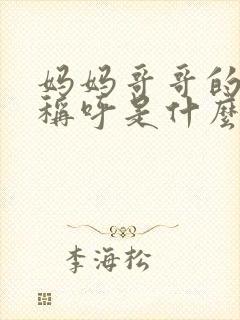 妈妈哥哥的
稱呼是什麼
李海松